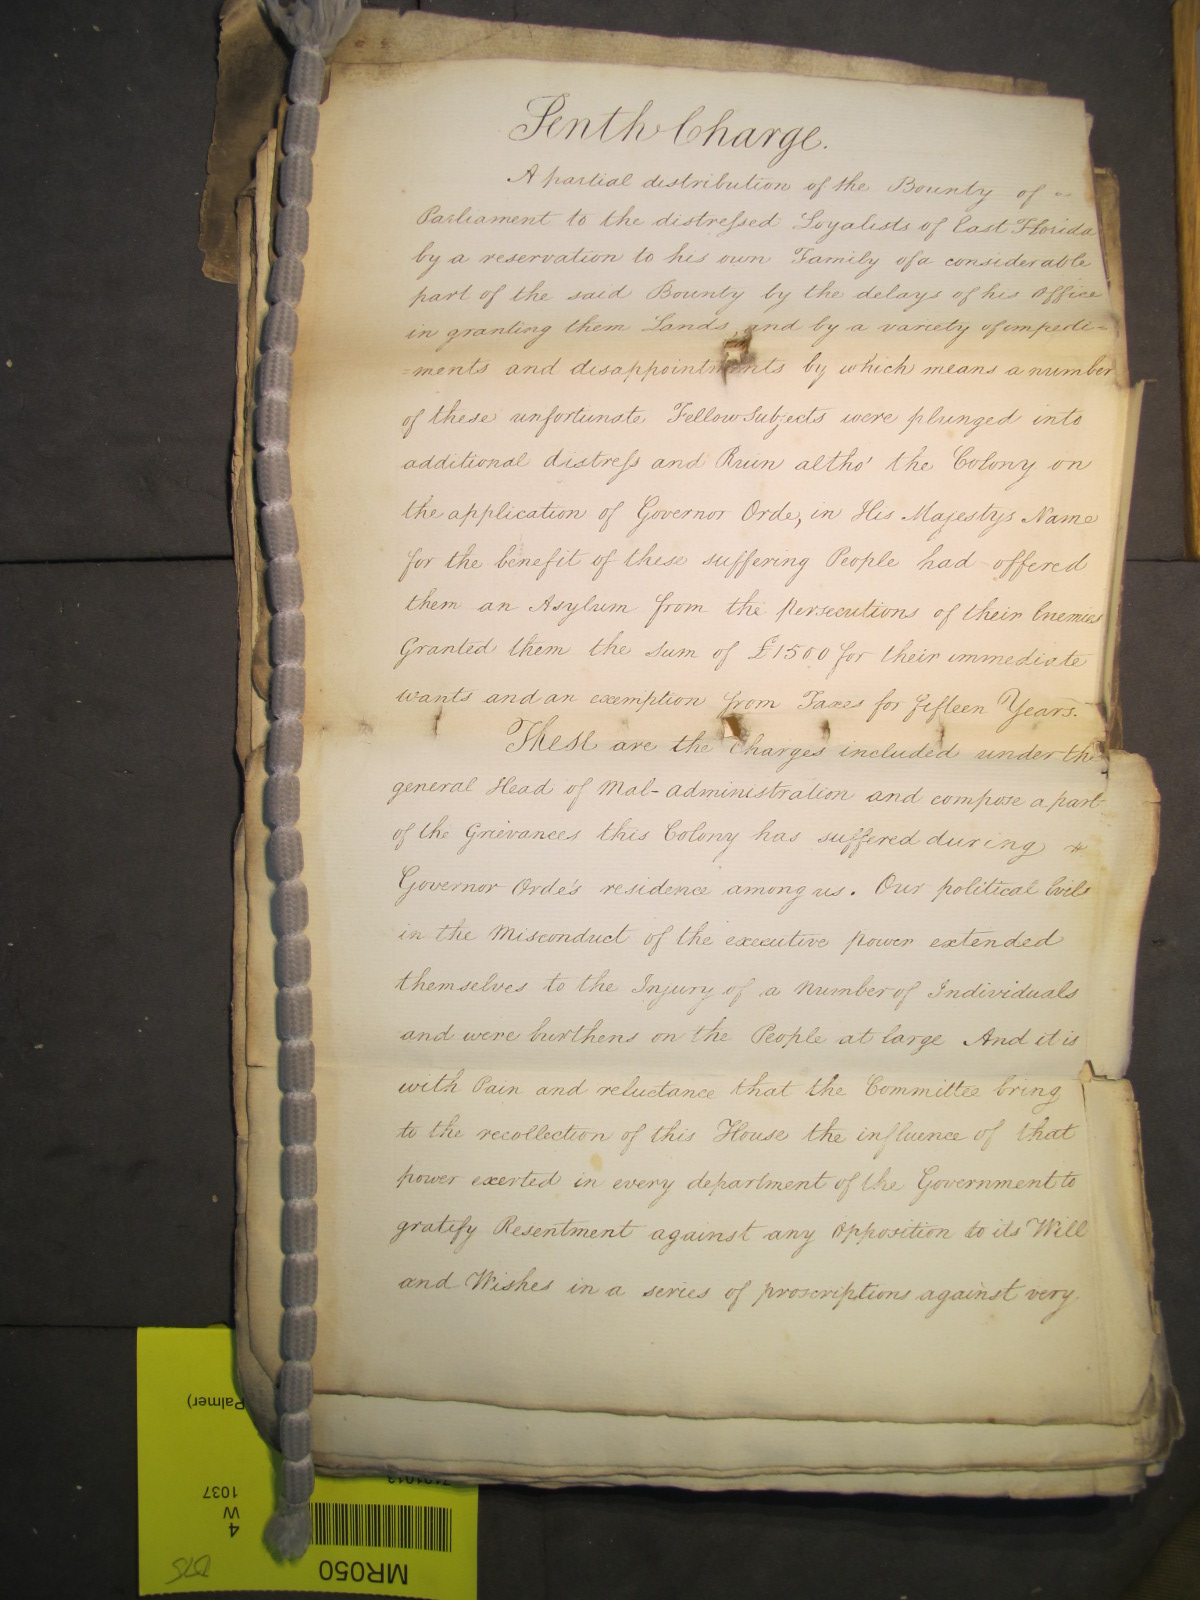 Tenth Charge.
A partial distribution of the Bounty of
Parliament to the distressed Loyalists of East Florida
by a reservation to his own Family of a considerable
part of the said Bounty by the delays of his Office
in granting them Lands, and by a variety of impedi=
=ments and disappointments by which means a number
of these unfortunate Fellow Subjects were plunged into
additional distress and Ruin altho' the Colony on
the application of Governor Orde, in His Majesty's Name
for the benefit of these suffering People had offered
them an Asylum from the Persecutions of their Enemies
Granted them the sum of £1500 for their immediate
wants and an exemption from Taxes for fifteen Years.
These are the Charges included under the
general Head of Mal-administration and compose a part
of the Grievances this Colony has suffered during
Governor Orde's residence among us. Our political Evils
in the Misconduct of the executive power extended
themselves to the Injury of a Number of Individuals
and were burthens on the People at large And it is
with Pain and reluctance that the Committee bring
to the recollection of this House the influence of that
power exerted in every department of the Government to
gratify Resentment against any Opposition to its Will
and Wishes in a series of proscriptions against very
Palmer)
4
W
1037
MR050